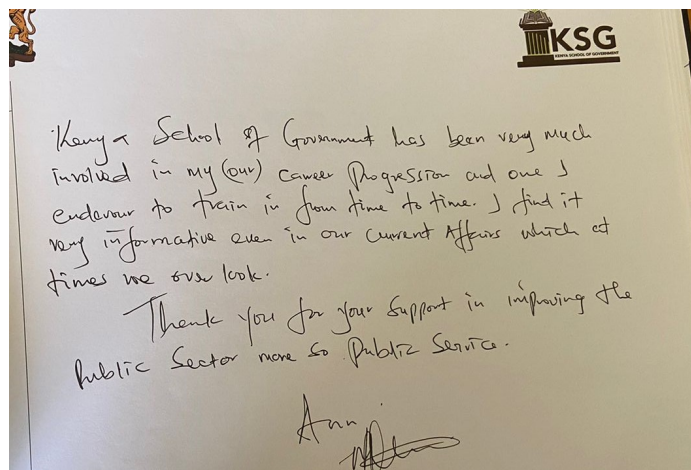 KSG
KENYA SCHOOL OF GOVERNMENT
Kenya School of Government has been very much
involved in my (our) career Progression and one I
endevour to train in from time to time. I find it
very informative even in our Current Affairs which at
times we over look.
Thank you for your Support in improving the
Public Sector more so Public Service.
Ann